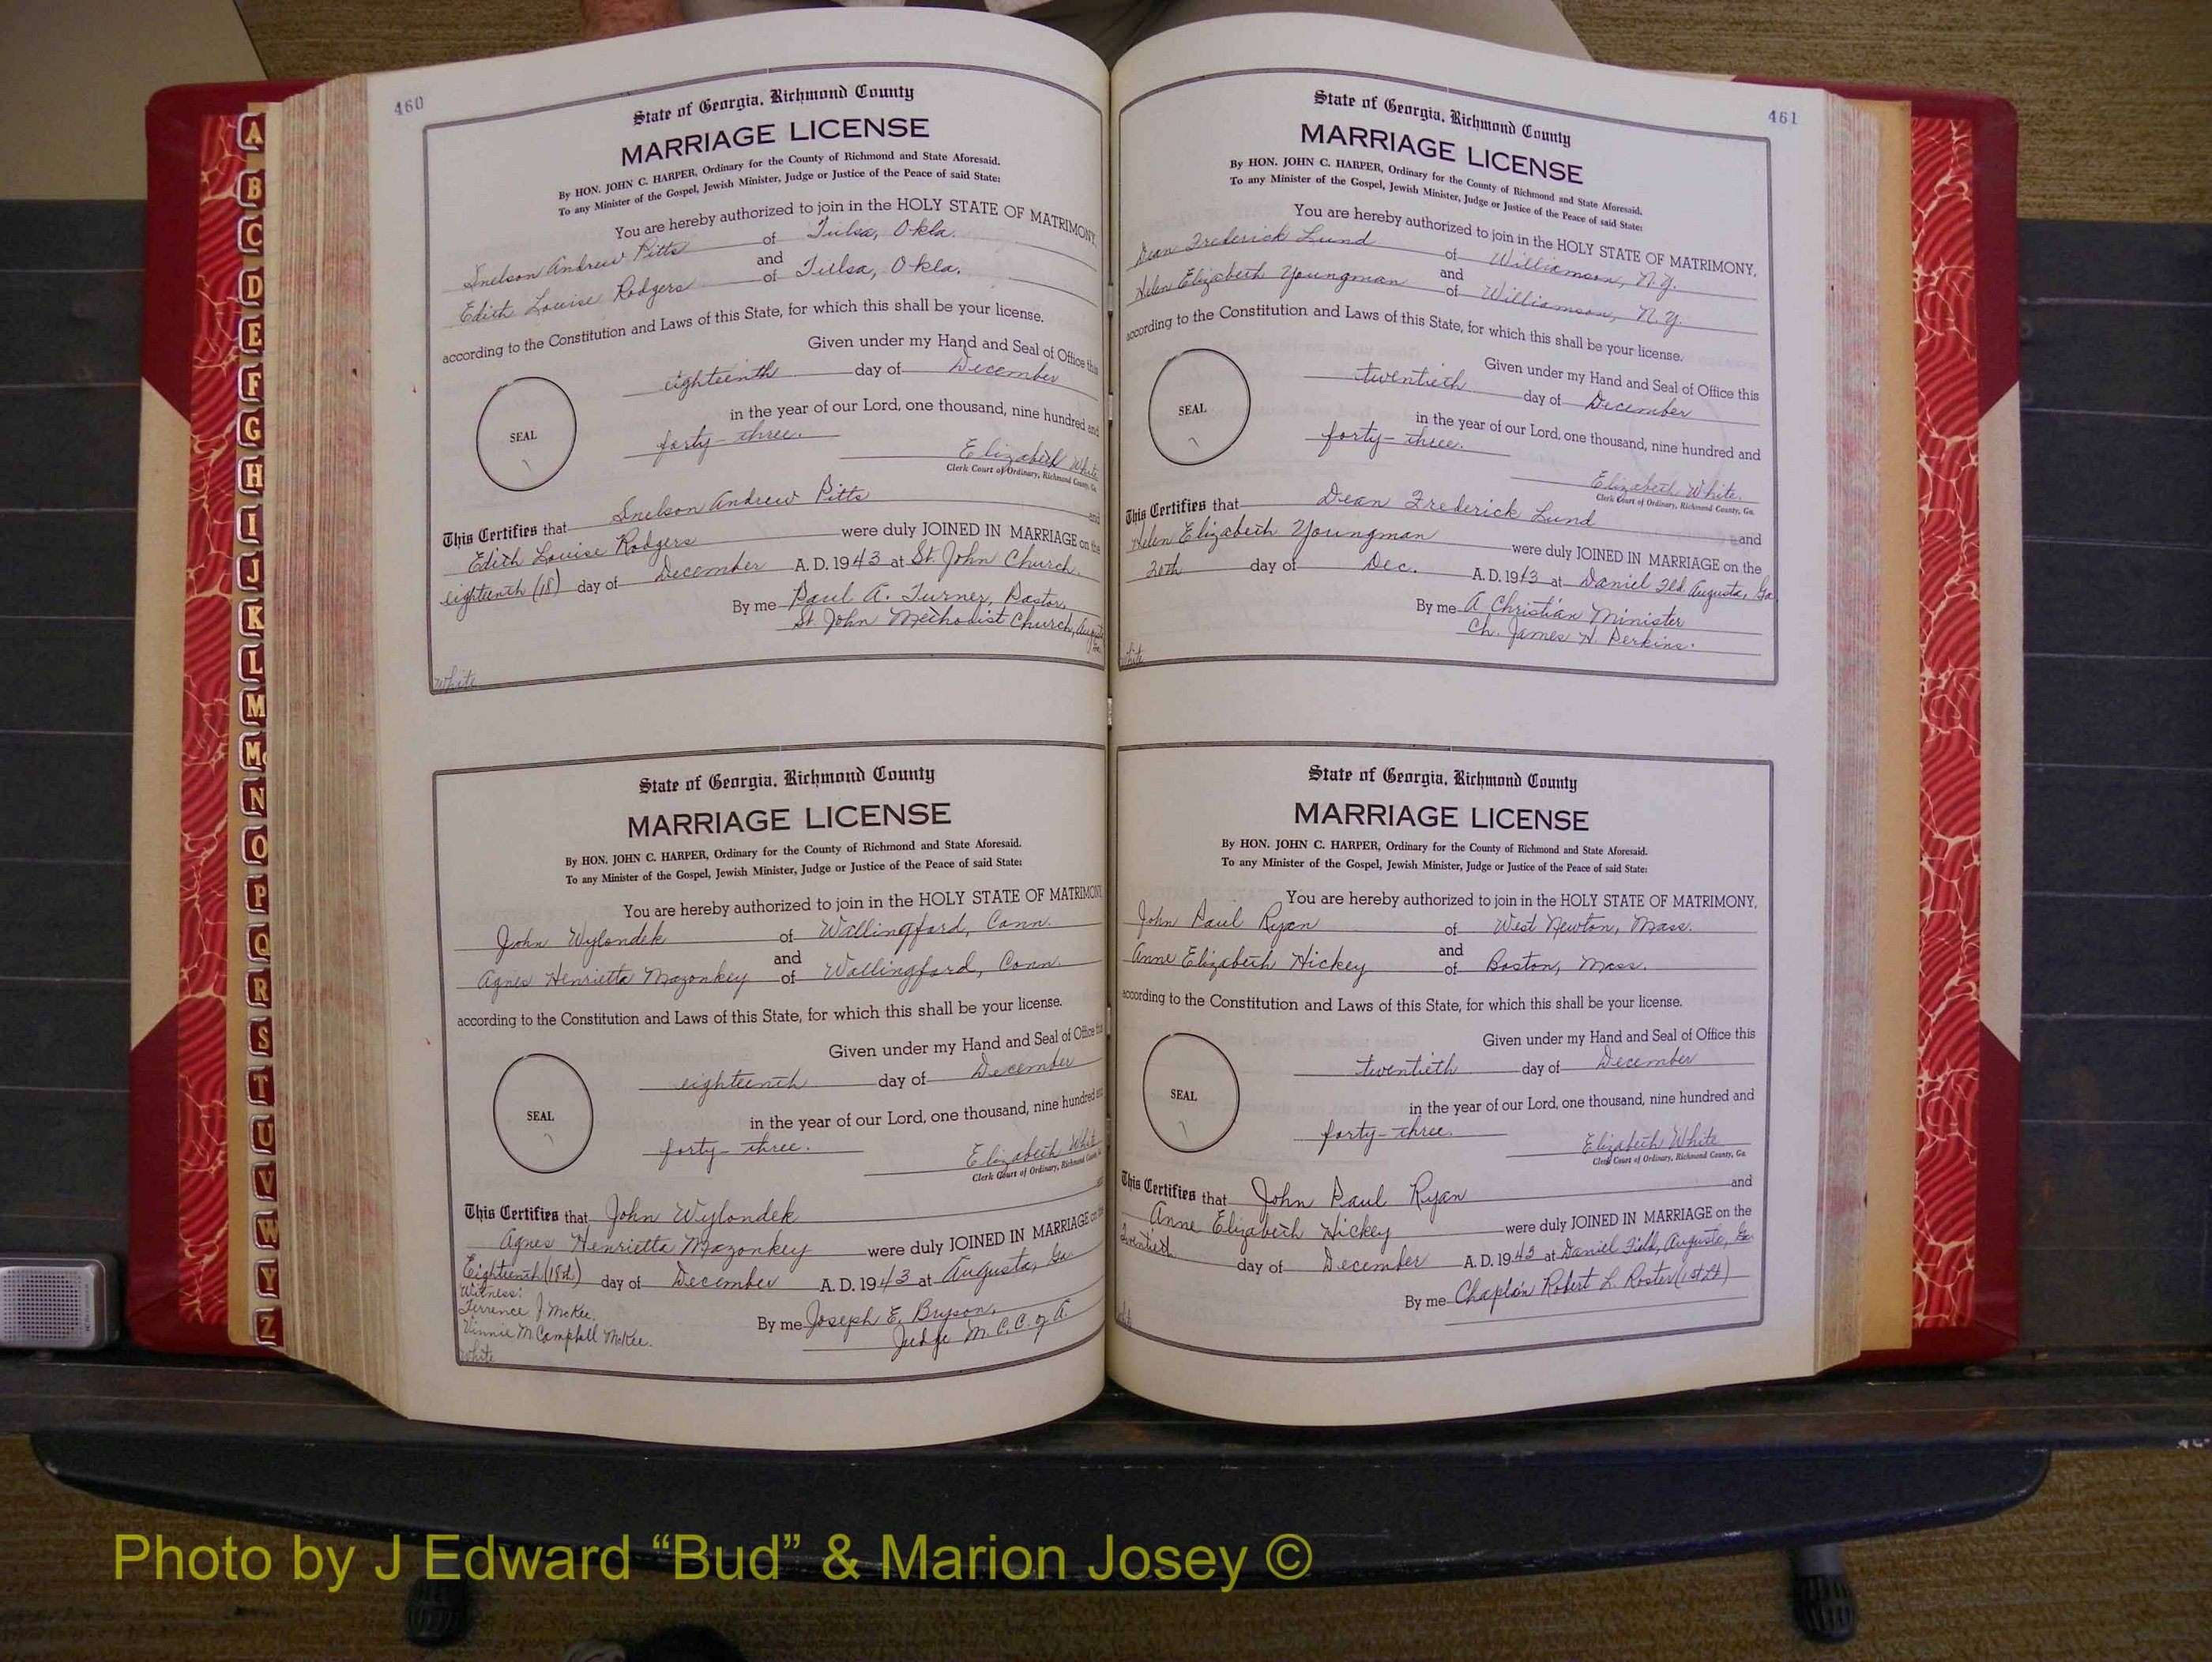 460
State of Georgia, Richmond County
MARRIAGE LICENSE
By HON. JOHN C. HARPER, Ordinary for the County of Richmond and State Aforesaid.
To any Minister of the Gospel, Jewish Minister, Judge or Justice of the Peace of said State:
You are hereby authorized to join in the HOLY STATE OF MATRIMONY,
Snelson Andrew Pitts of Tulsa, Okla.
and
Edith Louise Rodgers of Tulsa, Okla.
according to the Constitution and Laws of this State, for which this shall be your license.
Given under my Hand and Seal of Office this
eighteenth day of December
in the year of our Lord, one thousand, nine hundred and
SEAL
forty-three.
Elizabeth White
Clerk Court of Ordinary, Richmond County, Ga.
This Certifies that Snelson Andrew Pitts and
Edith Louise Rodgers were duly JOINED IN MARRIAGE on the
eighteenth (18) day of December A. D. 1943 at St. John Church.
By me Paul A. Turner, Pastor,
St. John Methodist Church, Augusta
Ga.
White
State of Georgia, Richmond County
MARRIAGE LICENSE
By HON. JOHN C. HARPER, Ordinary for the County of Richmond and State Aforesaid.
To any Minister of the Gospel, Jewish Minister, Judge or Justice of the Peace of said State:
You are hereby authorized to join in the HOLY STATE OF MATRIMONY,
John Wylondek of Wallingford, Conn.
and
Agnes Henrietta Mazonkey of Wallingford, Conn.
according to the Constitution and Laws of this State, for which this shall be your license.
Given under my Hand and Seal of Office this
eighteenth day of December
SEAL
in the year of our Lord, one thousand, nine hundred and
forty-three.
Elizabeth White
Clerk Court of Ordinary, Richmond County, Ga.
This Certifies that John Wylondek and
Agnes Henrietta Mazonkey were duly JOINED IN MARRIAGE on the
Eighteenth (18th) day of December A. D. 1943 at Augusta, Ga.
Witness:
Terrence J McKee.
Vinnie M Campbell McKee.
By me Joseph E. Bryson,
Judge M. C. C. of A.
White
461
State of Georgia, Richmond County
MARRIAGE LICENSE
By HON. JOHN C. HARPER, Ordinary for the County of Richmond and State Aforesaid.
To any Minister of the Gospel, Jewish Minister, Judge or Justice of the Peace of said State:
You are hereby authorized to join in the HOLY STATE OF MATRIMONY,
Dean Frederick Lund of Williamson, N.Y.
and
Helen Elizabeth Youngman of Williamson, N.Y.
according to the Constitution and Laws of this State, for which this shall be your license.
Given under my Hand and Seal of Office this
twentieth day of December
SEAL
in the year of our Lord, one thousand, nine hundred and
forty-three.
Elizabeth White.
Clerk Court of Ordinary, Richmond County, Ga.
This Certifies that Dean Frederick Lund and
Helen Elizabeth Youngman were duly JOINED IN MARRIAGE on the
20th day of Dec. A. D. 1943 at Daniel Fld Augusta, Ga
By me A Christian Minister
Ch. James H. Perkins.
White
State of Georgia, Richmond County
MARRIAGE LICENSE
By HON. JOHN C. HARPER, Ordinary for the County of Richmond and State Aforesaid.
To any Minister of the Gospel, Jewish Minister, Judge or Justice of the Peace of said State:
You are hereby authorized to join in the HOLY STATE OF MATRIMONY,
John Paul Ryan of West Newton, Mass.
and
Anne Elizabeth Hickey of Boston, Mass.
according to the Constitution and Laws of this State, for which this shall be your license.
Given under my Hand and Seal of Office this
twentieth day of December
SEAL
in the year of our Lord, one thousand, nine hundred and
forty-three.
Elizabeth White
Clerk Court of Ordinary, Richmond County, Ga.
This Certifies that John Paul Ryan and
Anne Elizabeth Hickey were duly JOINED IN MARRIAGE on the
twentieth day of December A. D. 1943 at Daniel Field, Augusta, Ga
By me Chaplain Robert L. Roster (1st Lt)
A
B
C
D
E
F
G
H
I
J
K
L
M
Mc
N
O
P
Q
R
S
T
U
V
W
Y
Z
Photo by J Edward “Bud” & Marion Josey ©